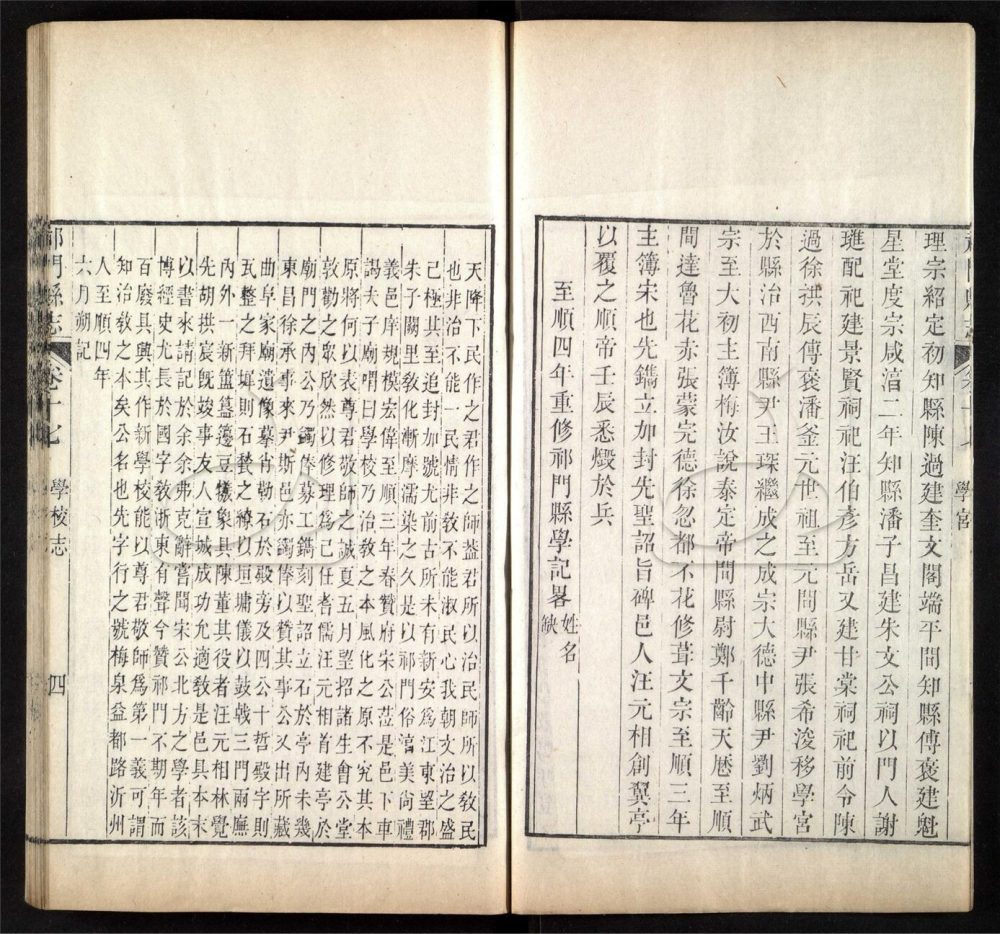 學宮
理宗紹定初知縣陳過建奎文閣端平間知縣傅褒建魁
星堂度宗咸淯二年知縣潘子昌建朱文公祠以門人謝
璡配祀建景賢祠祀汪伯彥方岳又建甘棠祠祀前令陳
過徐拱辰傅褒潘釜元世祖至元間縣尹張希浚移學宮
於縣治西南縣尹王琛繼成之成宗大德中縣尹劉炳武
宗至大初主簿梅汝說泰定帝間縣尉鄭千齡天曆至順
間達魯花赤張蒙完德徐忽都不花修葺文宗至順三年
主簿宋也先鐫立加封先聖詔旨碑邑人汪元相創翼亭
以覆之順帝壬辰悉燬於兵
至順四年重修祁門縣學記畧姓名缺
天降下民作之君作之師蓋君所以治民師所以敎民
也非治不能一民情非敎不能淑民心我朝文治之盛
已極其至追封加號尤前古所未有新安爲江東望郡
朱子闕里敎化漸摩濡染之久是以祁門俗湻美尙禮
義邑庠規模宏偉至順三年春贊府宋公蒞是邑下車
謁夫子廟喟曰學校乃治敎之本風化之原不究其本
原將何以表尊君敬師之誠夏五月朢招諸生會公堂
敦勸之衆欣然以修理爲己任耆儒汪元相首建亭於
廟門之內公乃鐲俸募工鐫刻聖詔立石於亭內未幾
東昌徐承事來尹斯邑亦鐲俸以贊其事公又出所藏
曲阜家廟遺像摹肖勒石於殿旁及四公十哲殿字則
瓦整之拜墀則石甃之繚以垣墉儀以鼓戟三門兩廡
內外一新簠簋籩豆儀象具陳董其役者汪元相林覺
先胡拱宸旣竣事友人宣城成功允適敎是邑具本末
以書來請記於余余弗克辭嘗聞宋公北方之學者該
博經史尤長於國字敎浙東有聲今贊祁門不期年而
百廢具興其作新學校能以尊君敬師爲第一義可謂
知治敎之本矣公名也先字行之號梅泉益都路沂州
人至順四年
六月朔記
祁門縣志
卷十七
學校志
四